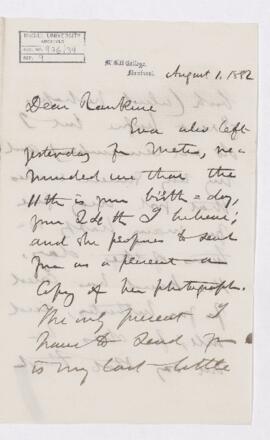 McGILL UNIVERSITY
ARCHIVES
ACC. NO. 926/39
REF. 9
McGill College,
Montreal.
August 1, 1882
Dear Rankine
Eva who left
yesterday for Metis, re-
minded me that the
11th is your birth-day,
your 28th I believe;
and she proposes to send
you as a present a
Copy of her photograph.
The only present I
have to send you
is my last little